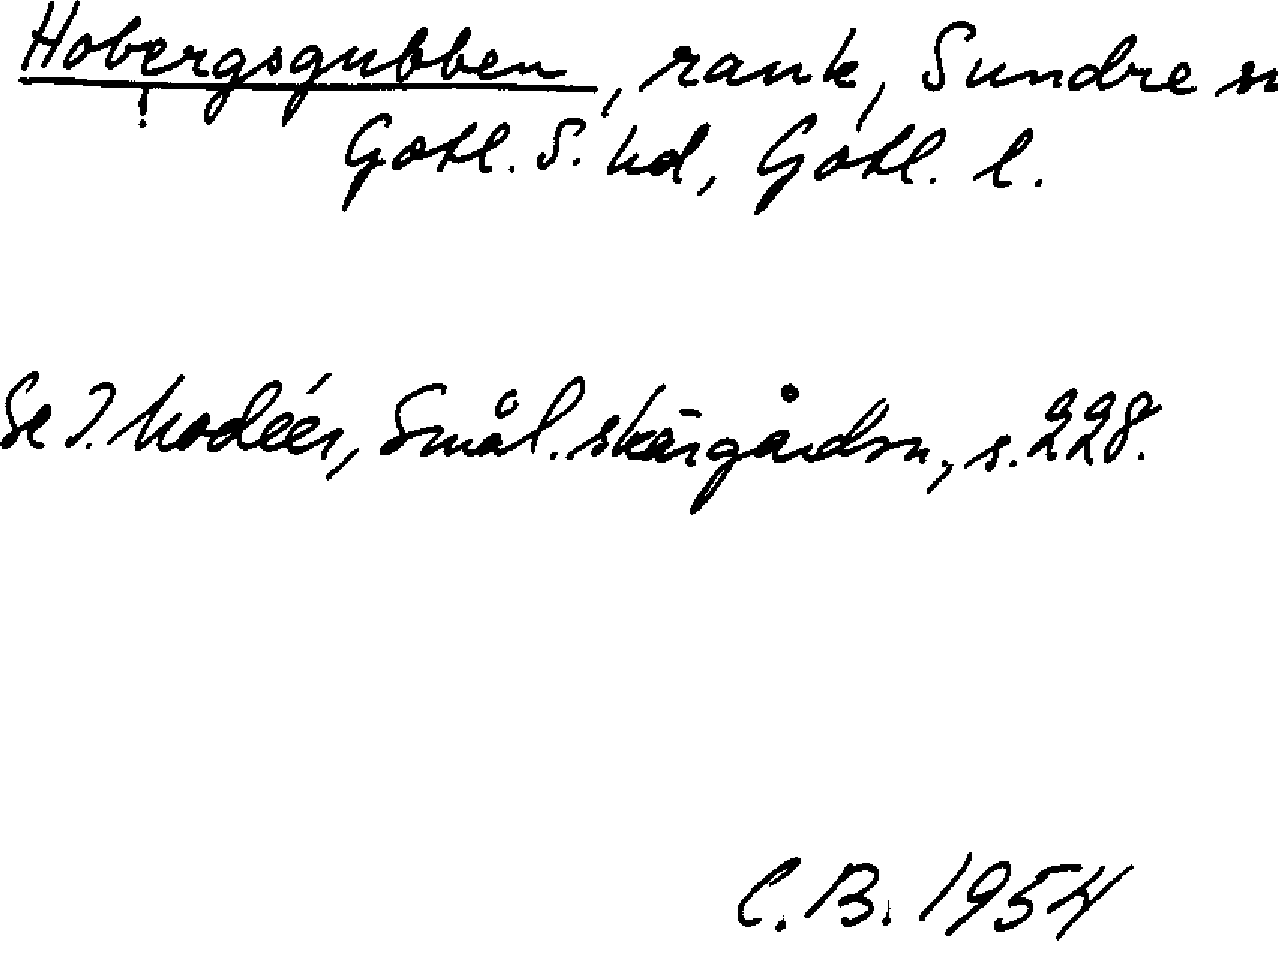 Hobergsgubben, rauk, Sundre sn
Gotl. S. hd, Gotl. l.
Se I. Modéer, Smål. skärgårdsn, s. 228.
C. B. 1954